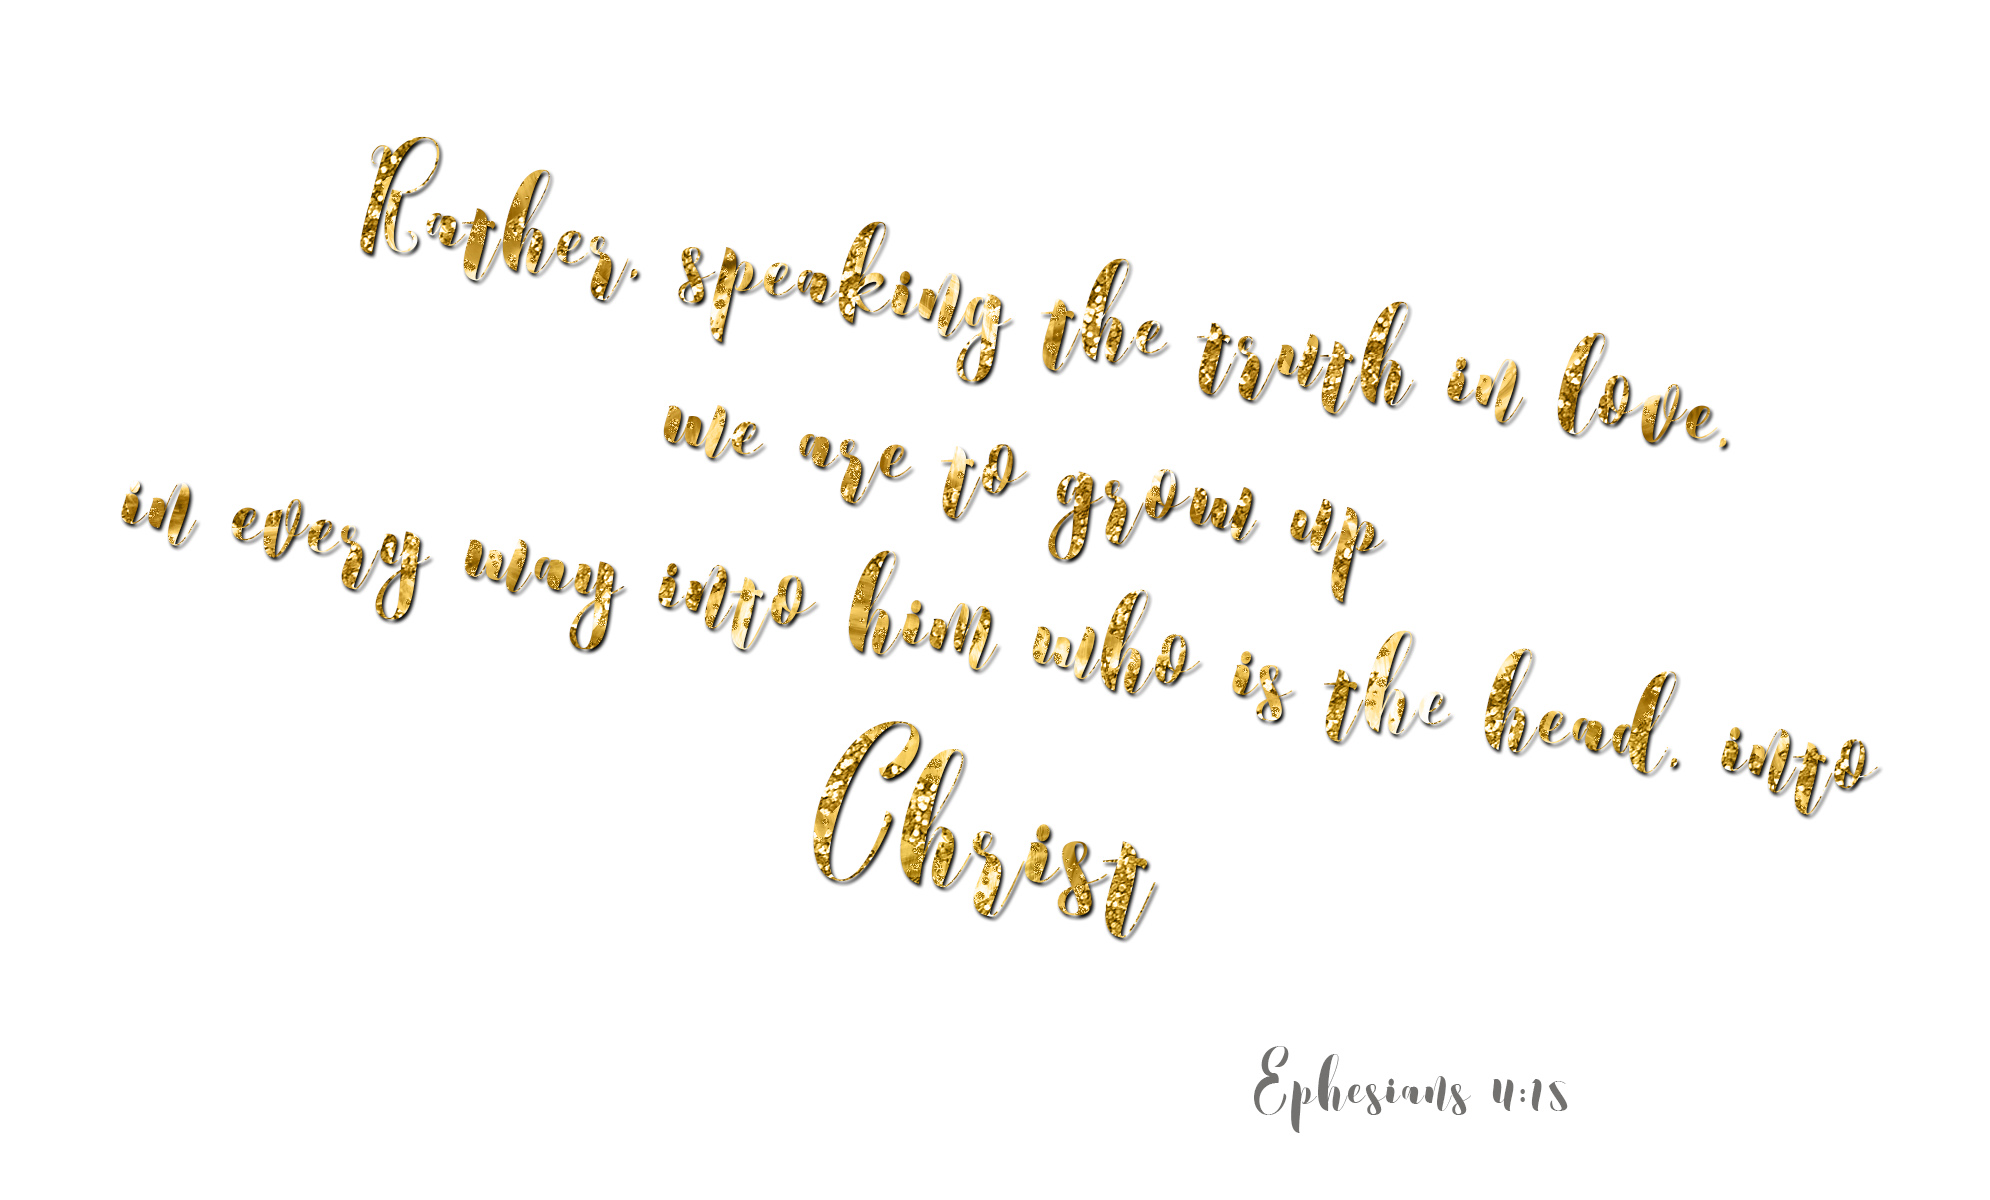 Rather, speaking the truth in love,
we are to grow up
in every way into him who is the head, into
Christ
Ephesians 4:15